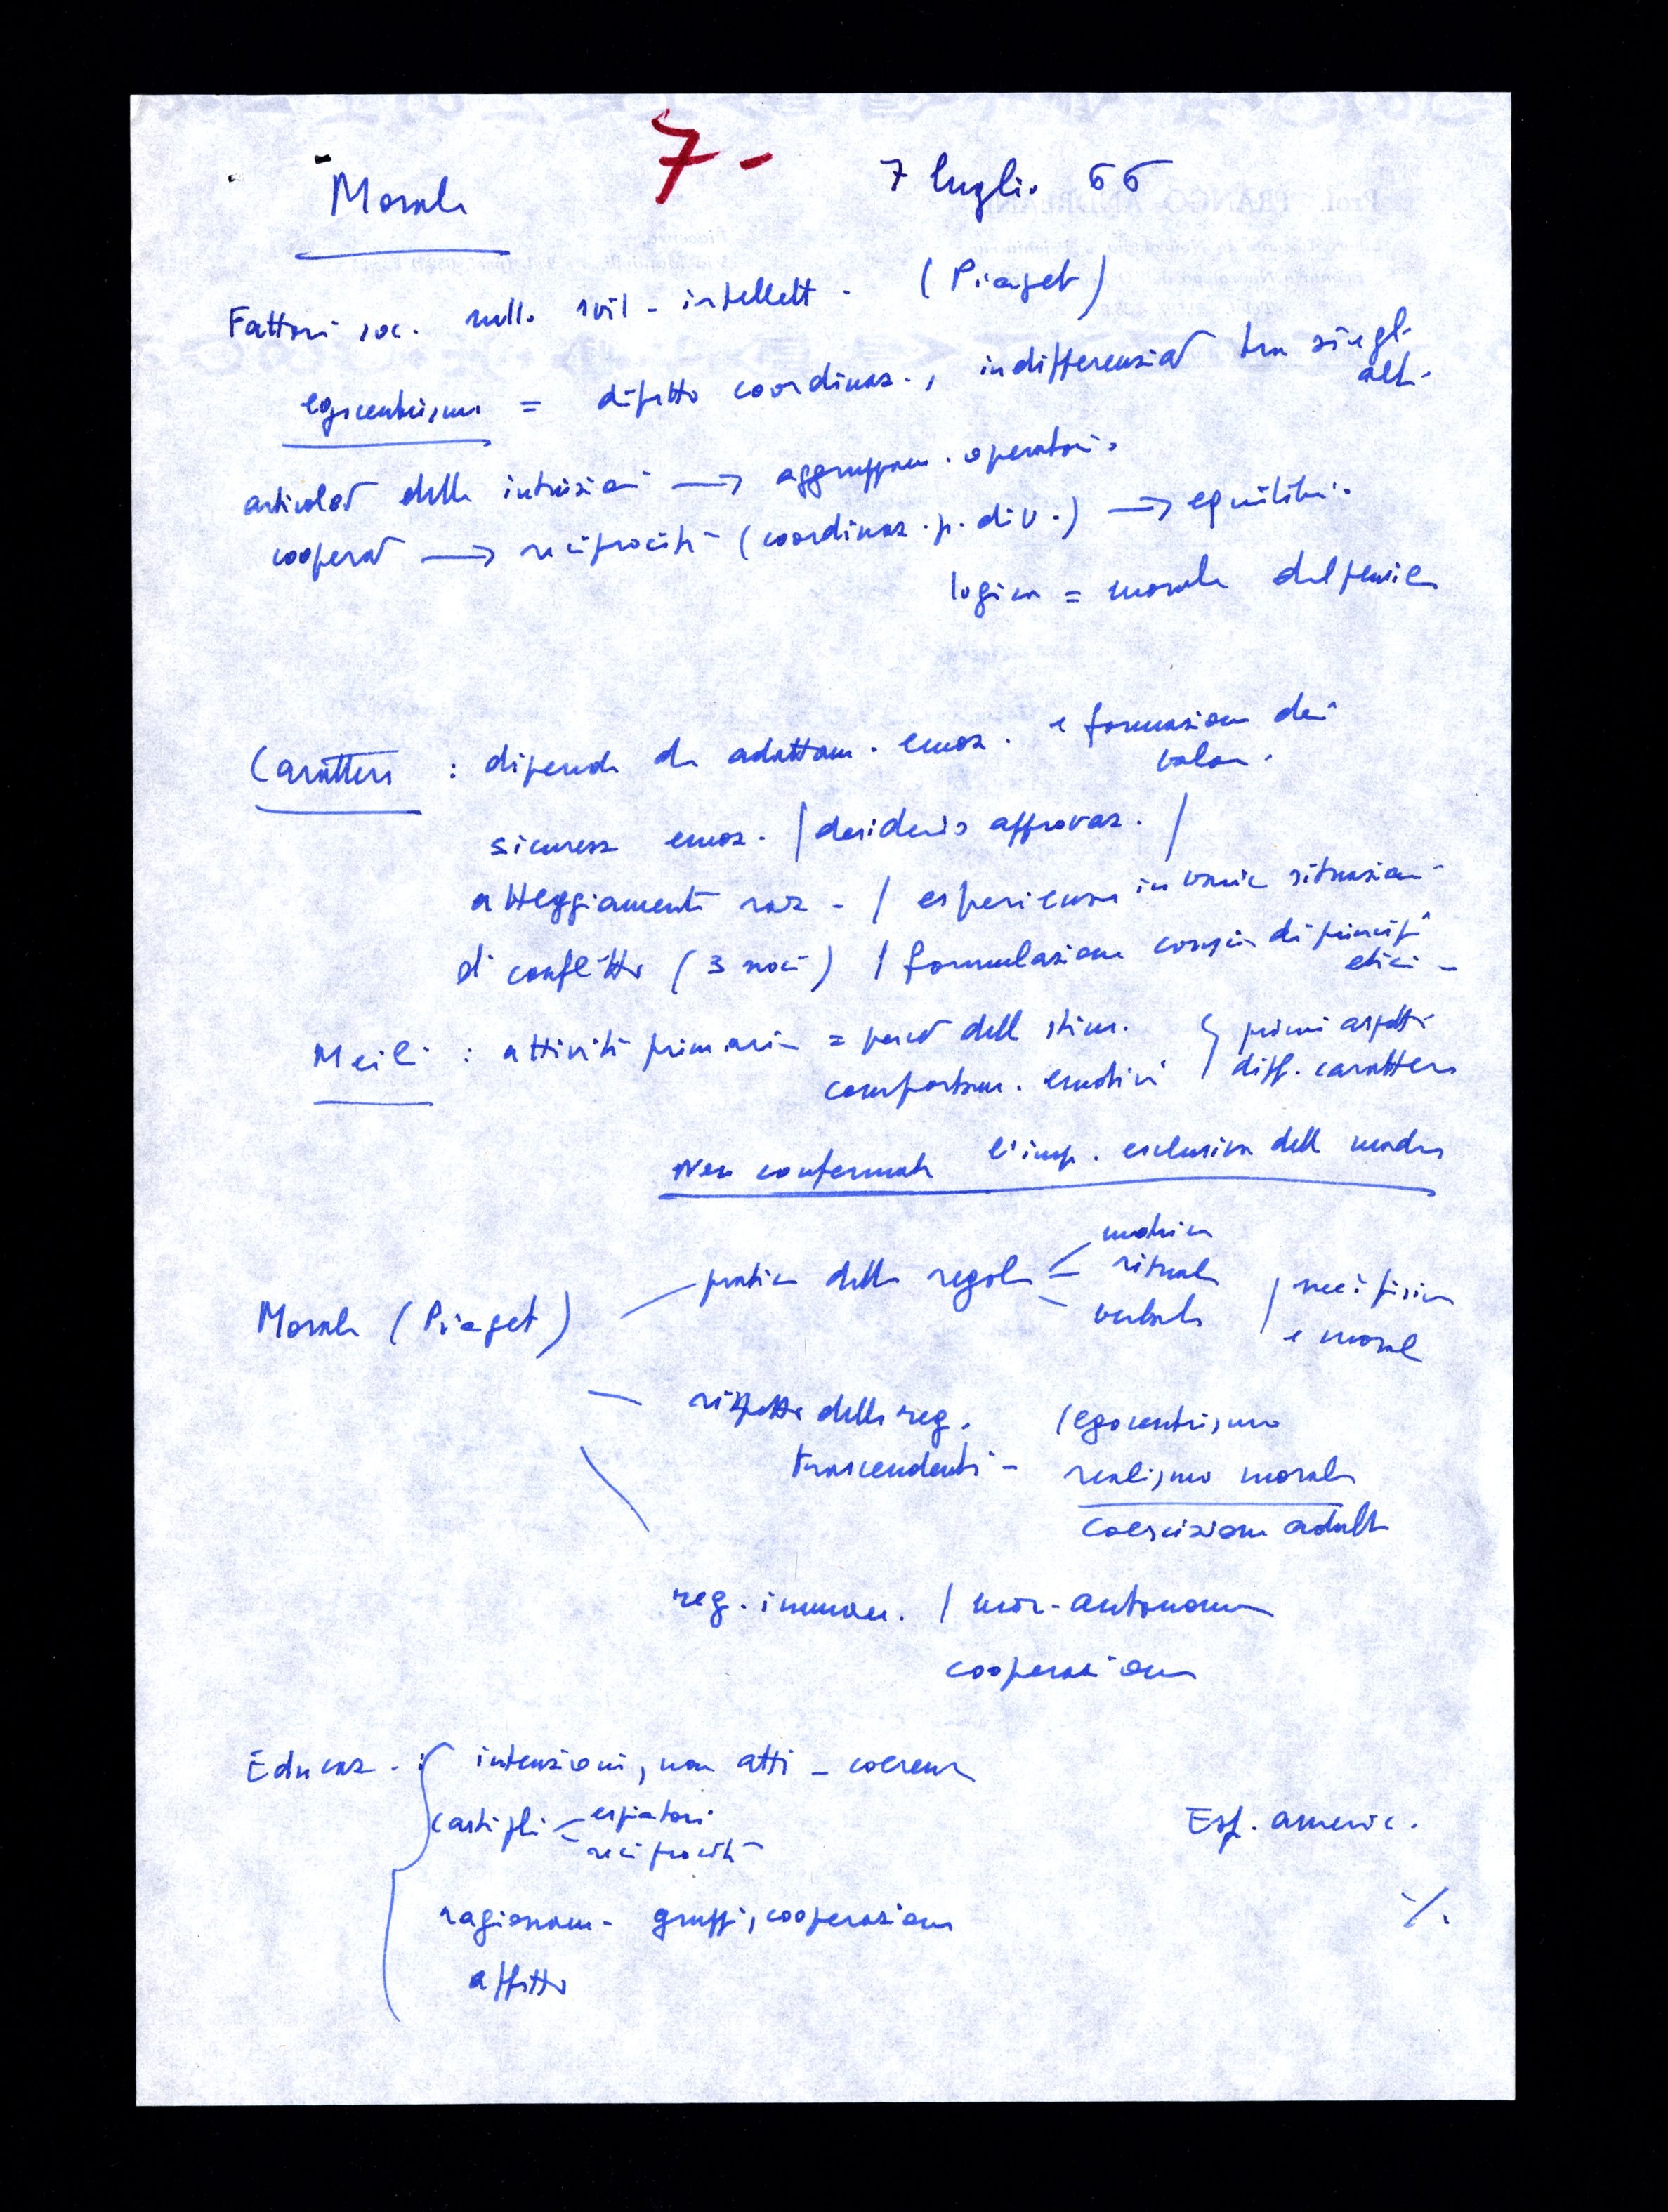 7 -
Morale
7 luglio 66
Fattori soc. nello svil. intellett. (Piaget)
egocentrismo = difetto coordinaz., indifferenziat tra sé e gli
altri
articolaz delle intuizioni → aggruppam. operatorio
cooperaz → reciprocità (coordinaz. p. di v.) → equilibrio
logica = morale del pensiero
Carattere : dipende da adattam. emoz. e formazione dei
valori
sicurezza emoz. / desiderio approvaz. /
atteggiamenti raz - / esperienza in varie situazioni
di conflitto (3 noci) / formulazione conscia di principi
etici -
Meili : attività primaria = perce dello stim.
comportam. emotivi
primi aspetti
diff. carattere
Non confermata l'imp. esclusiva della madre
Morale (Piaget)
pratica delle regole
motrice
rituale
verbale
e morale
rispetto delle reg.
trascendenti -
(egocentrismo
realismo morale
coercizione adulto
reg. imman. / mor. autonoma
cooperazione
Educaz. : intenzioni, non atti - coerenza
castighi
espiatori
reciprocità
Esp. americ.
ragionam - gruppi, cooperazione
affetto
./.